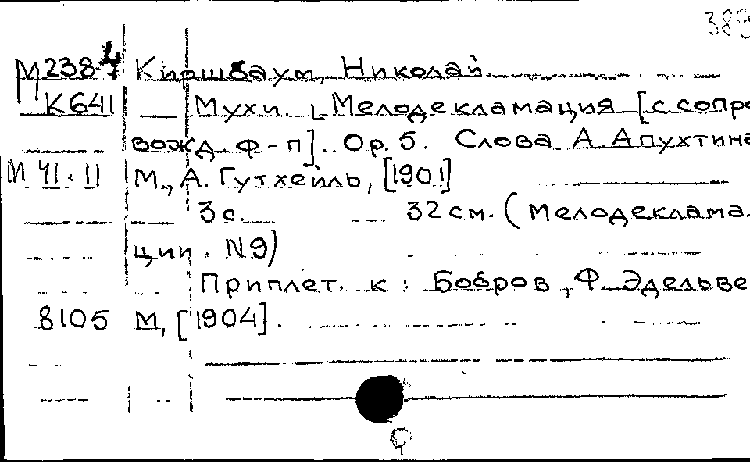 389
М238 Киршбаум, Николай
К641 Мухи. Мелодекламация [с сопро
вожд. Ф-п]. Op. 5. Слова А Апухтина
М 41.11 М., А. Гутхейль, [1901]
3 с. 32 см. (Мелодеклама
ции. N9)
Приплет. к : Бобров, Ф. Эдельве
8105 М, [1904].